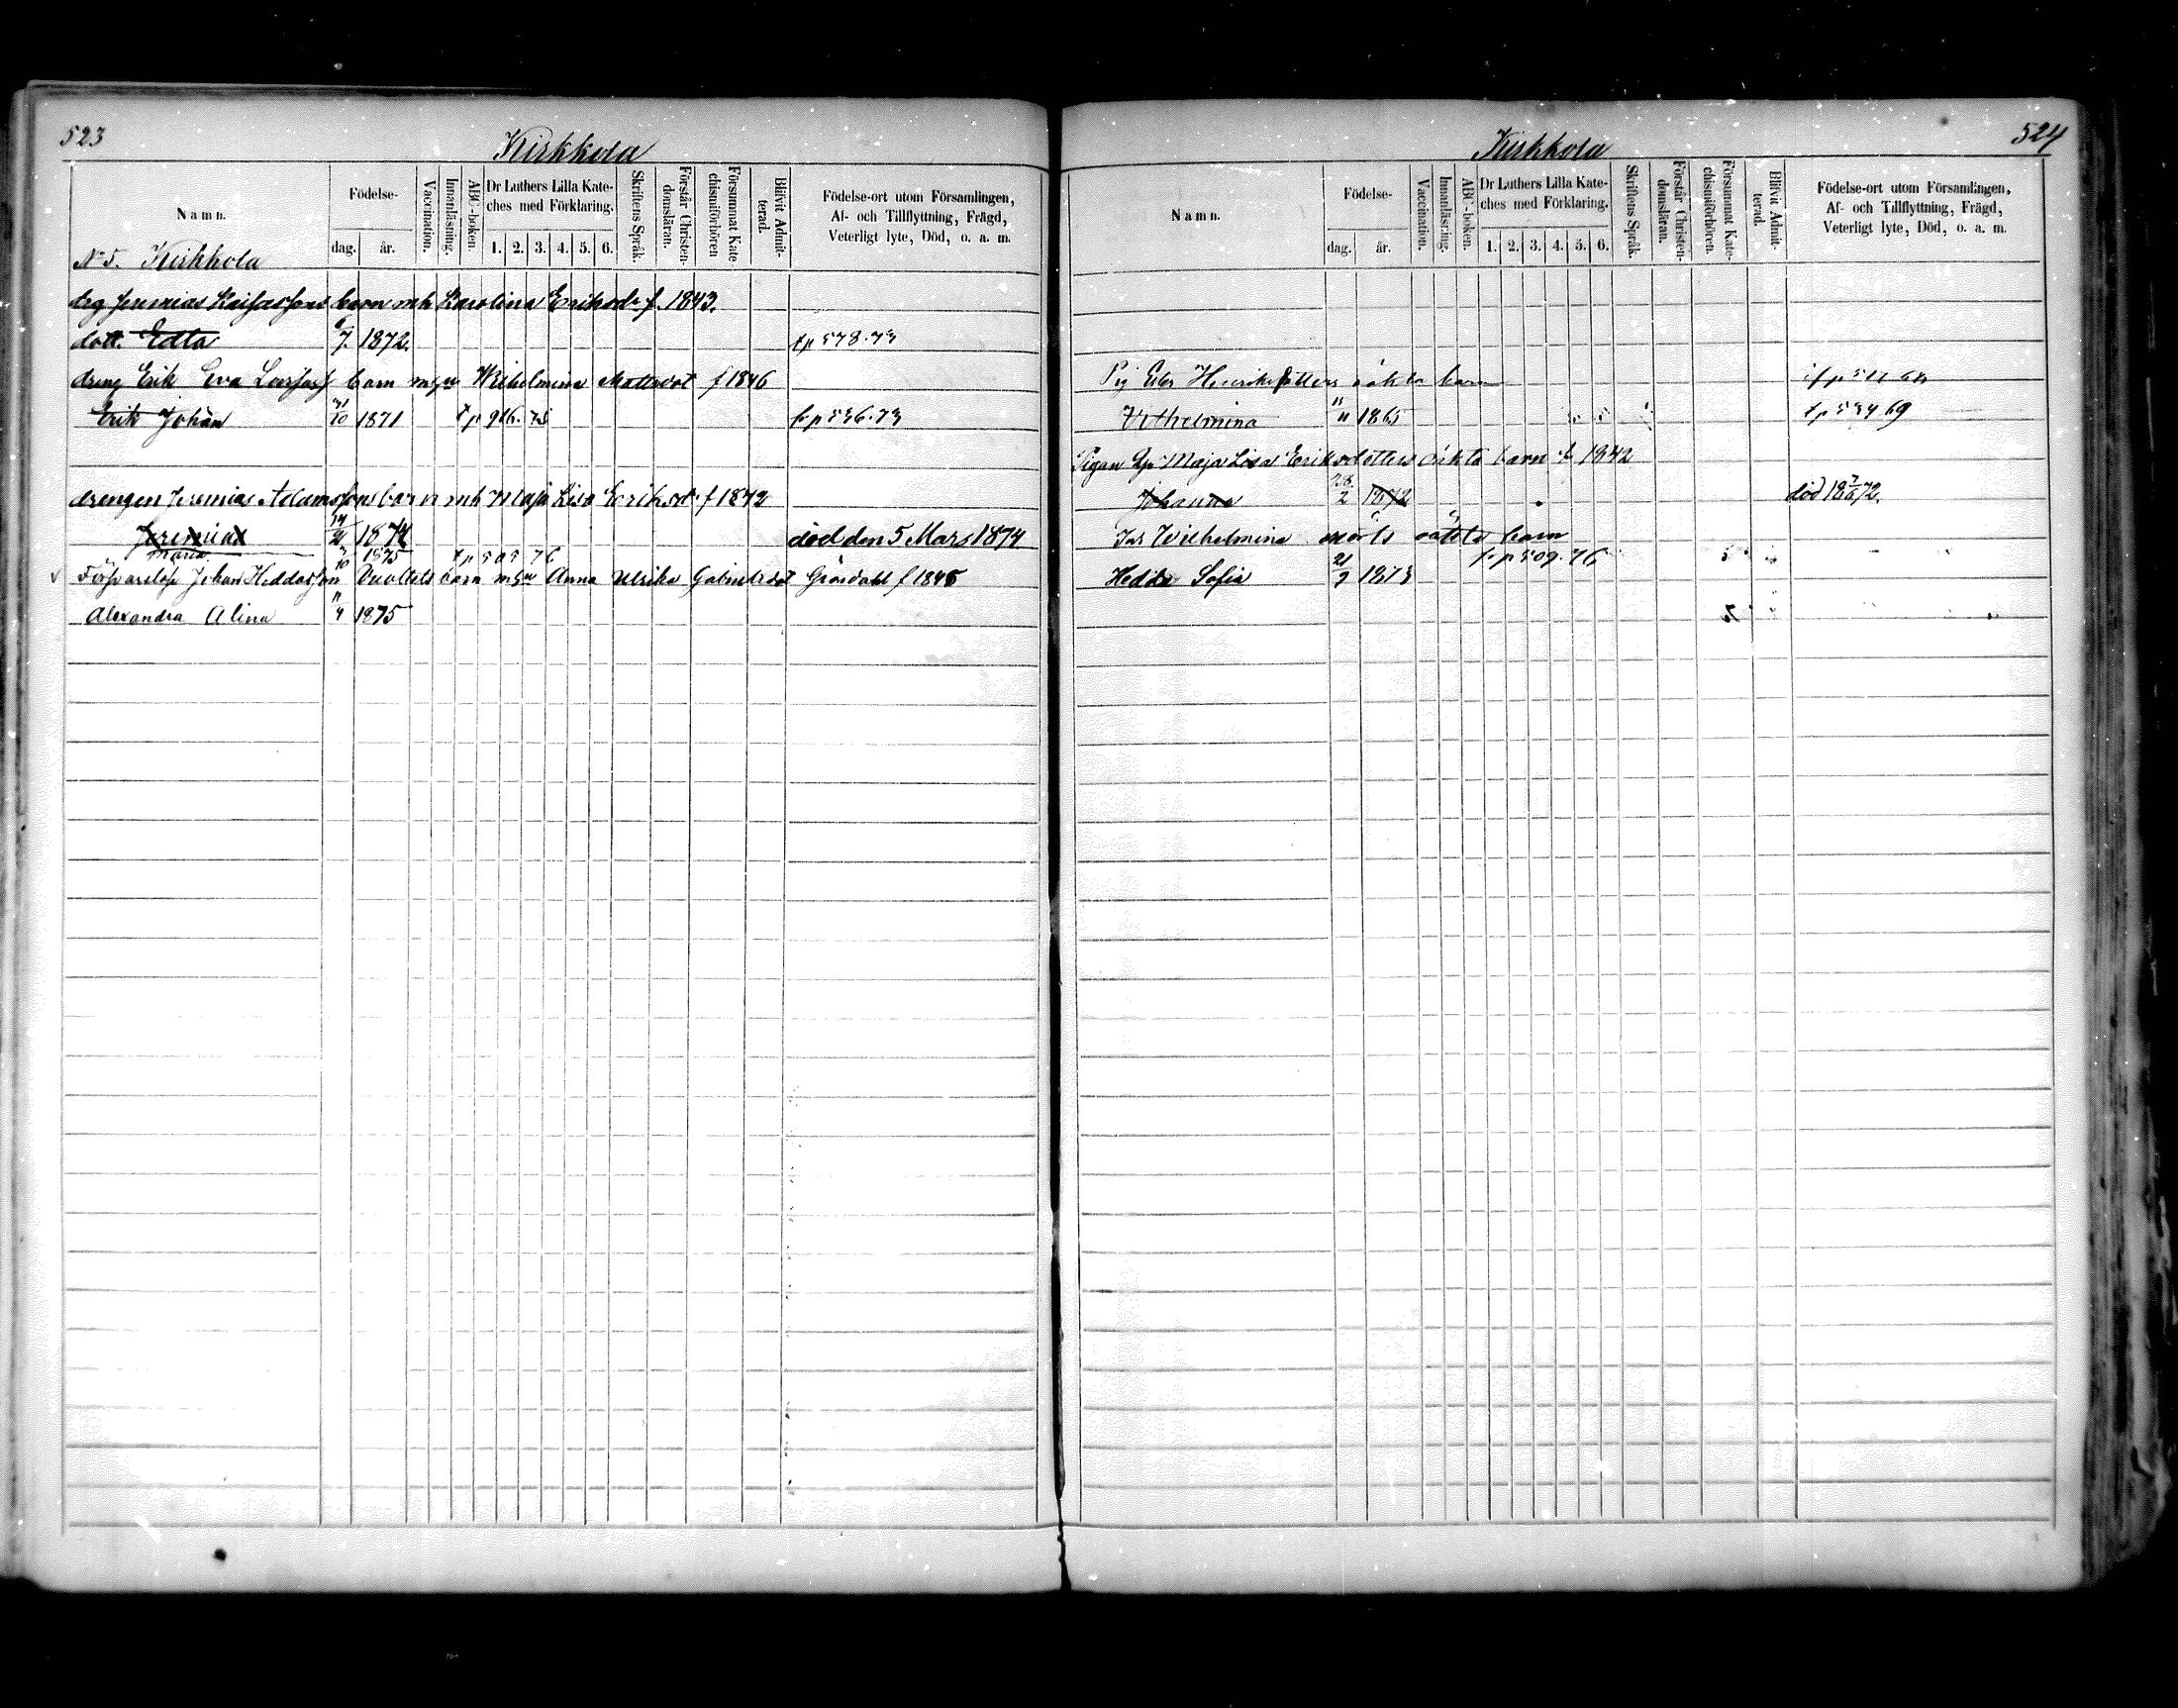 523
Kirkkola
Namn.
Födelse-
dag.
år.
Vaccination.
Innanläsning.
ABC-boken.
Dr Luthers Lilla Kate-
ches med Förklaring.
1. 2. 3. 4. 5. 6.
Skriftens Språk.
Förstår Christen-
domsläran.
Försummat Kate
chismiförhören
Blifvit Admit-
terad.
Födelse-ort utom Församlingen,
Af- och Tillflyttning, Frägd,
Veterligt lyte, Död, o. a. m.
No 5. Kirkkola
drg Jeremias barn mh Karolina Eriksdr f. 1843.
dott. Edla 6/7. 1872. tp 578.73
dreng Erik Eva barn m Wilhelmina Mattsdot f 1846
Erik Johan 31/10 1871 tp 916. 75 fr p 536.73
drengen Jeremias Adamssons barn mh Maja Lisa Eriksdr f 1842
Jeremias 14/2 1874 död den 5 Mars 1874
Maria 1875 tp 505 76
Johan Heddasson barn m Anna Ulrika Gabrielsdot f 1845
Alexandra Alina 11/4 1875
524
Kirkkola
Namn.
Födelse-
dag.
år.
Vaccination.
Innanläsning.
ABC-boken.
Dr Luthers Lilla Kate-
ches med Förklaring.
1. 2. 3. 4. 5. 6.
Skriftens Språk.
Förstår Christen-
domsläran.
Försummat Kate-
chismiförhören.
Blifvit Admit-
terad.
Födelse-ort utom Församlingen,
Af- och Tillflyttning, Frägd,
Veterligt lyte, Död, o. a. m.
Pig Henriksdotters oäkta barn
Vilhelmina 11/11 1865 tp 534 69
Pigan Maja Lisa Eriksdotters oäkta barn f 1842
Johanna 26/2 1872 död 18 7/6 72.
Wilhelmina oäkta barn
Hedda Sofia 21/9 1873 fr p 509. 76